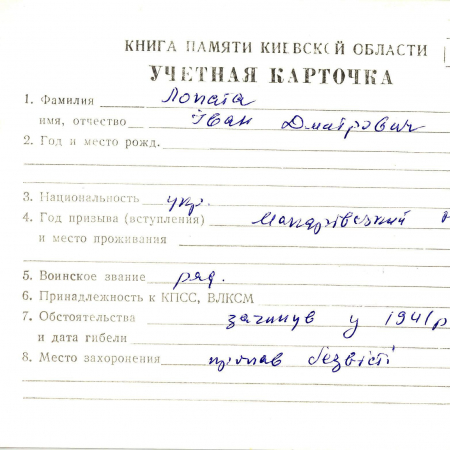 КНИГА ПАМЯТИ КИЕВСКОЙ ОБЛАСТИ
УЧЕТНАЯ КАРТОЧКА
1. Фамилия Лопата
имя, отчество Іван Дмитрович
2. Год и место рожд.
3. Национальность укр.
4. Год призыва (вступления) Макарівський
и место проживания
5. Воинское звание ряд.
6. Принадлежность к КПСС, ВЛКСМ
7. Обстоятельства загинув у 1941р
и дата гибели
8. Место захоронения пропав безвісті